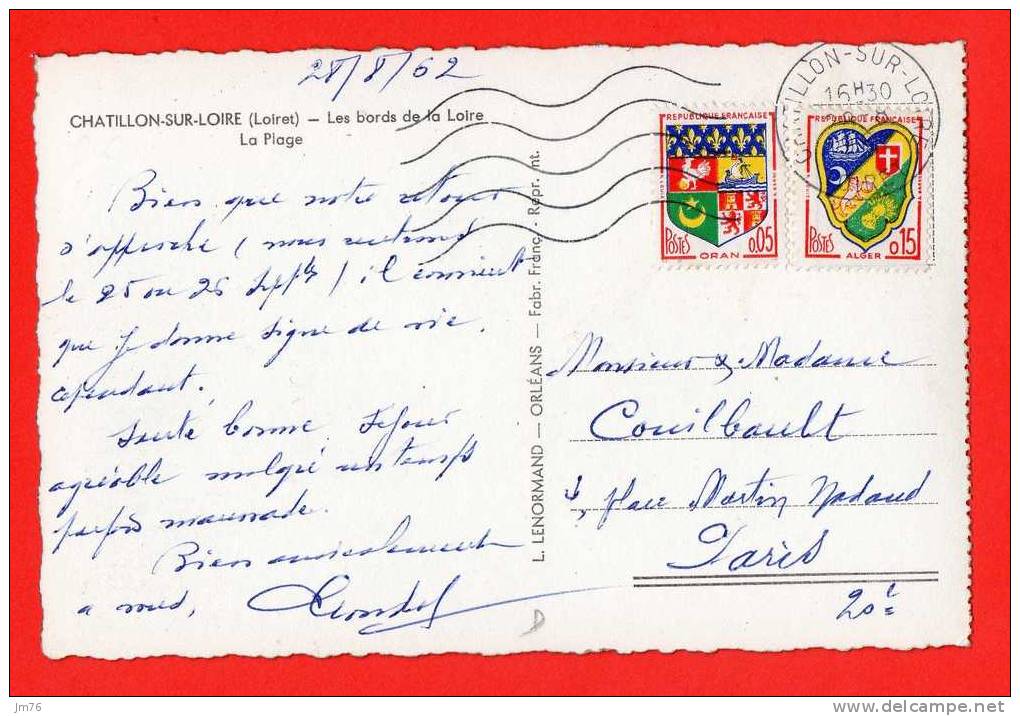 28/8/62
CHATILLON-SUR-LOIRE (Loiret) — Les bords de la Loire
La Plage
Bien que notre retour
s'approche (nous rentrons
le 25 ou 26 Sept) il convient
que je donne signe de vie
cependant.
Santé bonne. Séjour
agréable malgré un temps
parfois maussade.
Bien amicalement
a vous,
L. LENORMAND — ORLÉANS — Fabr. Franç. - Repr. Int.
CHATILLON-SUR-LOIRE
16H30
REPUBLIQUE FRANÇAISE
POSTES
0,05
ORAN
REPUBLIQUE FRANÇAISE
POSTES
0,15
ALGER
Monsieur & Madame
Couilbault
place Martin Nadaud
Paris
20e
D
jm76
www.delcampe.net